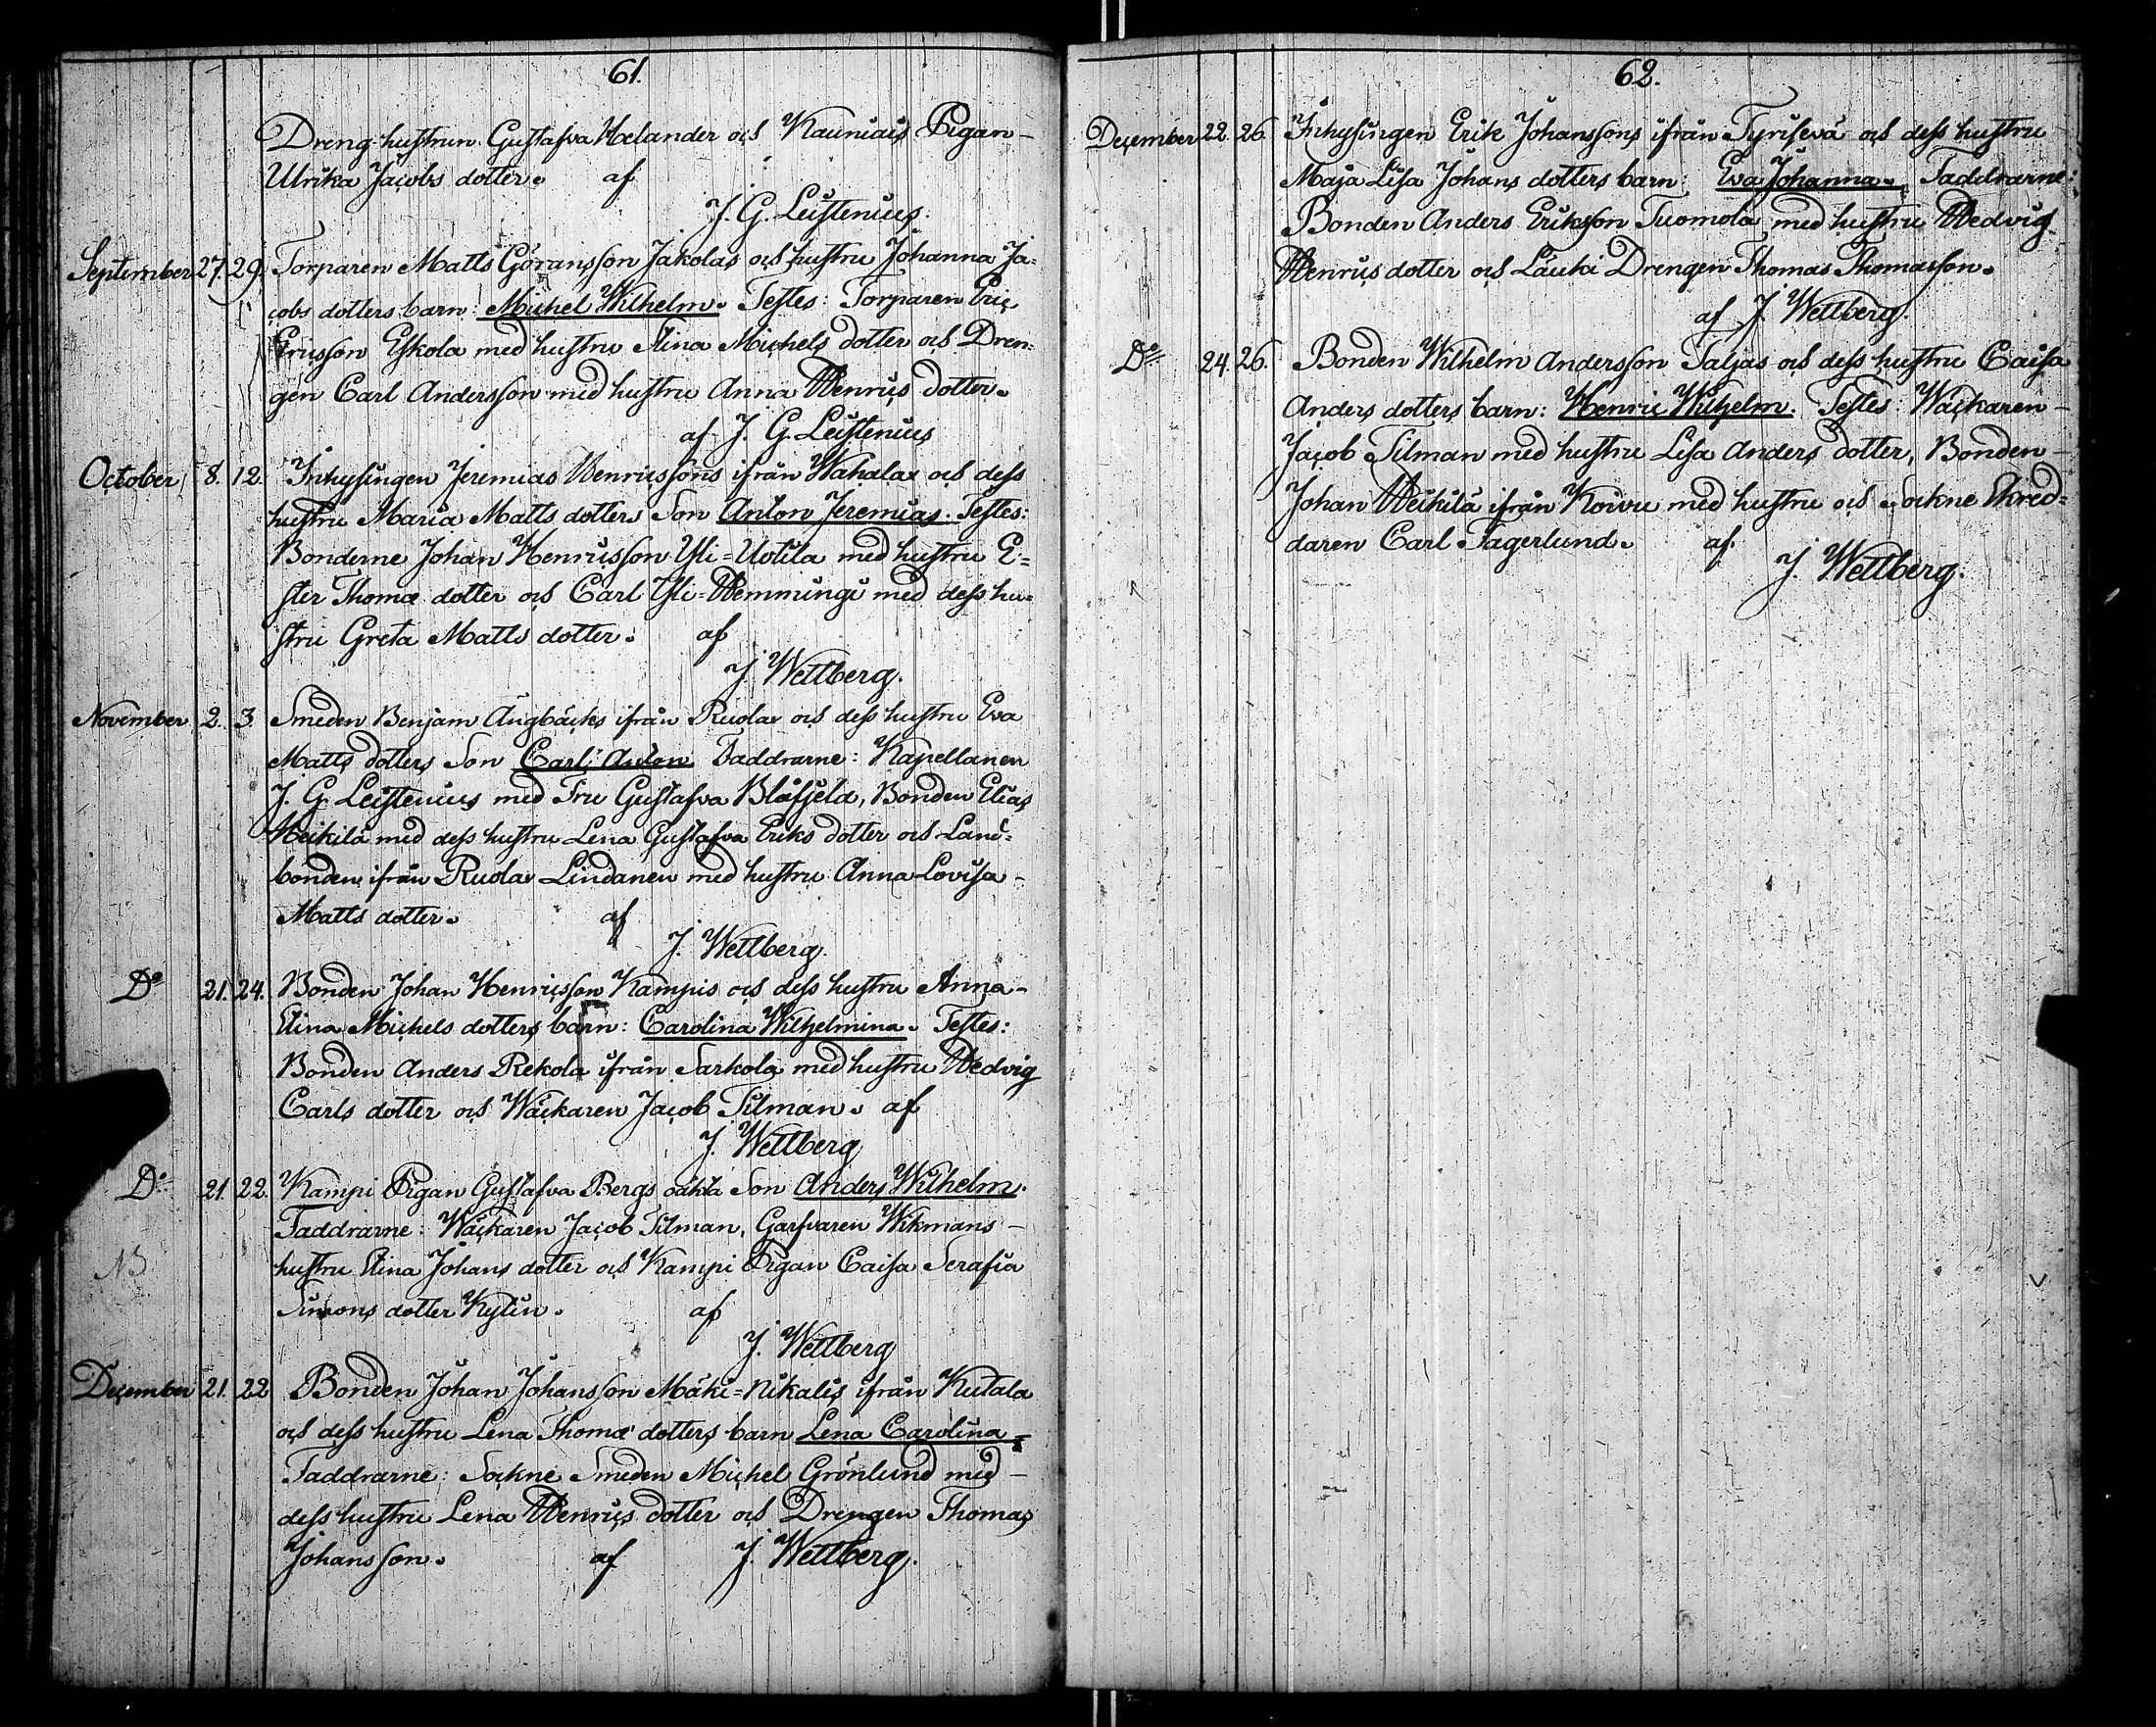 61.
Dreng-hustrun Gustafva Helander och Kauniais Pigan-
Ulrika Jacobs dotter. af
J. G. Leistenius.
September 27. 29. Torparen Matts Göransson Jakolas och hustru Johanna Ja-
cobs dotters barn: Michel Wilhelm. Testes: Torparen Eric
Ericsson Eskola med hustru Stina Michels dotter och Dren-
gen Carl Andersson med hustru Anna Henrics dotter.
af J. G. Leistenius
October 8. 12. Inhysingen Jeremias Henricssons ifrån Wahala och dess
hustru Maria Matts dotters Son Anton Jeremias. Testes:
Bönderne Johan Henricsson Yli=Uotila med hustru E=
ster Thomæ dotter och Carl Yli=Hemmingi med dess hu=
stru Greta Matts dotter. af
J. Wettberg.
November 2. 3. Smeden Benjam Ängbäcks ifrån Ruola och dess hustru Eva
Matts dotters Son Carl Anton Faddrarne: Kapellanen
J. G. Leistenius med Fru Gustafva Blåfjeld, Bonden Elias
Heikilä med dess hustru Lena Gustafva Eriks dotter och Land=
bonden ifrån Ruola Lindanen med hustru Anna Lovisa-
Matts dotter. af
J. Wettberg.
D:o 21. 24. Bonden Johan Henricsson Kampis och dess hustru Anna-
Stina Michels dotters barn: Carolina Wilhelmina. Testes:
Bonden Anders Rekola ifrån Sarkola med hustru Hedvig
Carls dotter och Wäckaren Jacob Silman. af
J. Wettberg
D:o 21. 22. Kampi Pigan Gustafva Bergs oäkta Son Anders Wilhelm.
Faddrarne: Wäckaren Jacob Silman, Garfvaren Wikmans-
NB
hustru Stina Johans dotter och Kampi Pigan Caisa Serafia
Simons dotter Kylin. af
J. Wettberg
December 21. 22 Bonden Johan Johansson Mäki=Nikalis ifrån Kutala
och dess hustru Lena Thomæ dotters barn Lena Carolina-
Faddrarne: Sockne Smeden Michel Grönlund med-
dess hustru Lena Henrics dotter och Drengen Thomas
Johansson. af J. Wettberg.
62.
December 22. 26. Inhysingen Erik Johanssons ifrån Tyrisevä och dess hustru
Maja Lisa Johans dotters barn: Eva Johanna. Faddrarne:
Bonden Anders Eriksson Tuomola med hustru Hedvig
Henrics dotter och Läuki Drengen Thomas Thomasson.
af J. Wettberg.
D:o 24. 26. Bonden Wilhelm Andersson Taljas och dess hustru Caisa
Anders dotters barn: Henric Wilhelm. Testes: Wäckaren-
Jacob Silman med hustru Lisa Anders dotter, Bonden-
Johan Heikilä ifrån Koivu med hustru och Sockne Skred=
daren Carl Fagerlund. af
J. Wettberg.